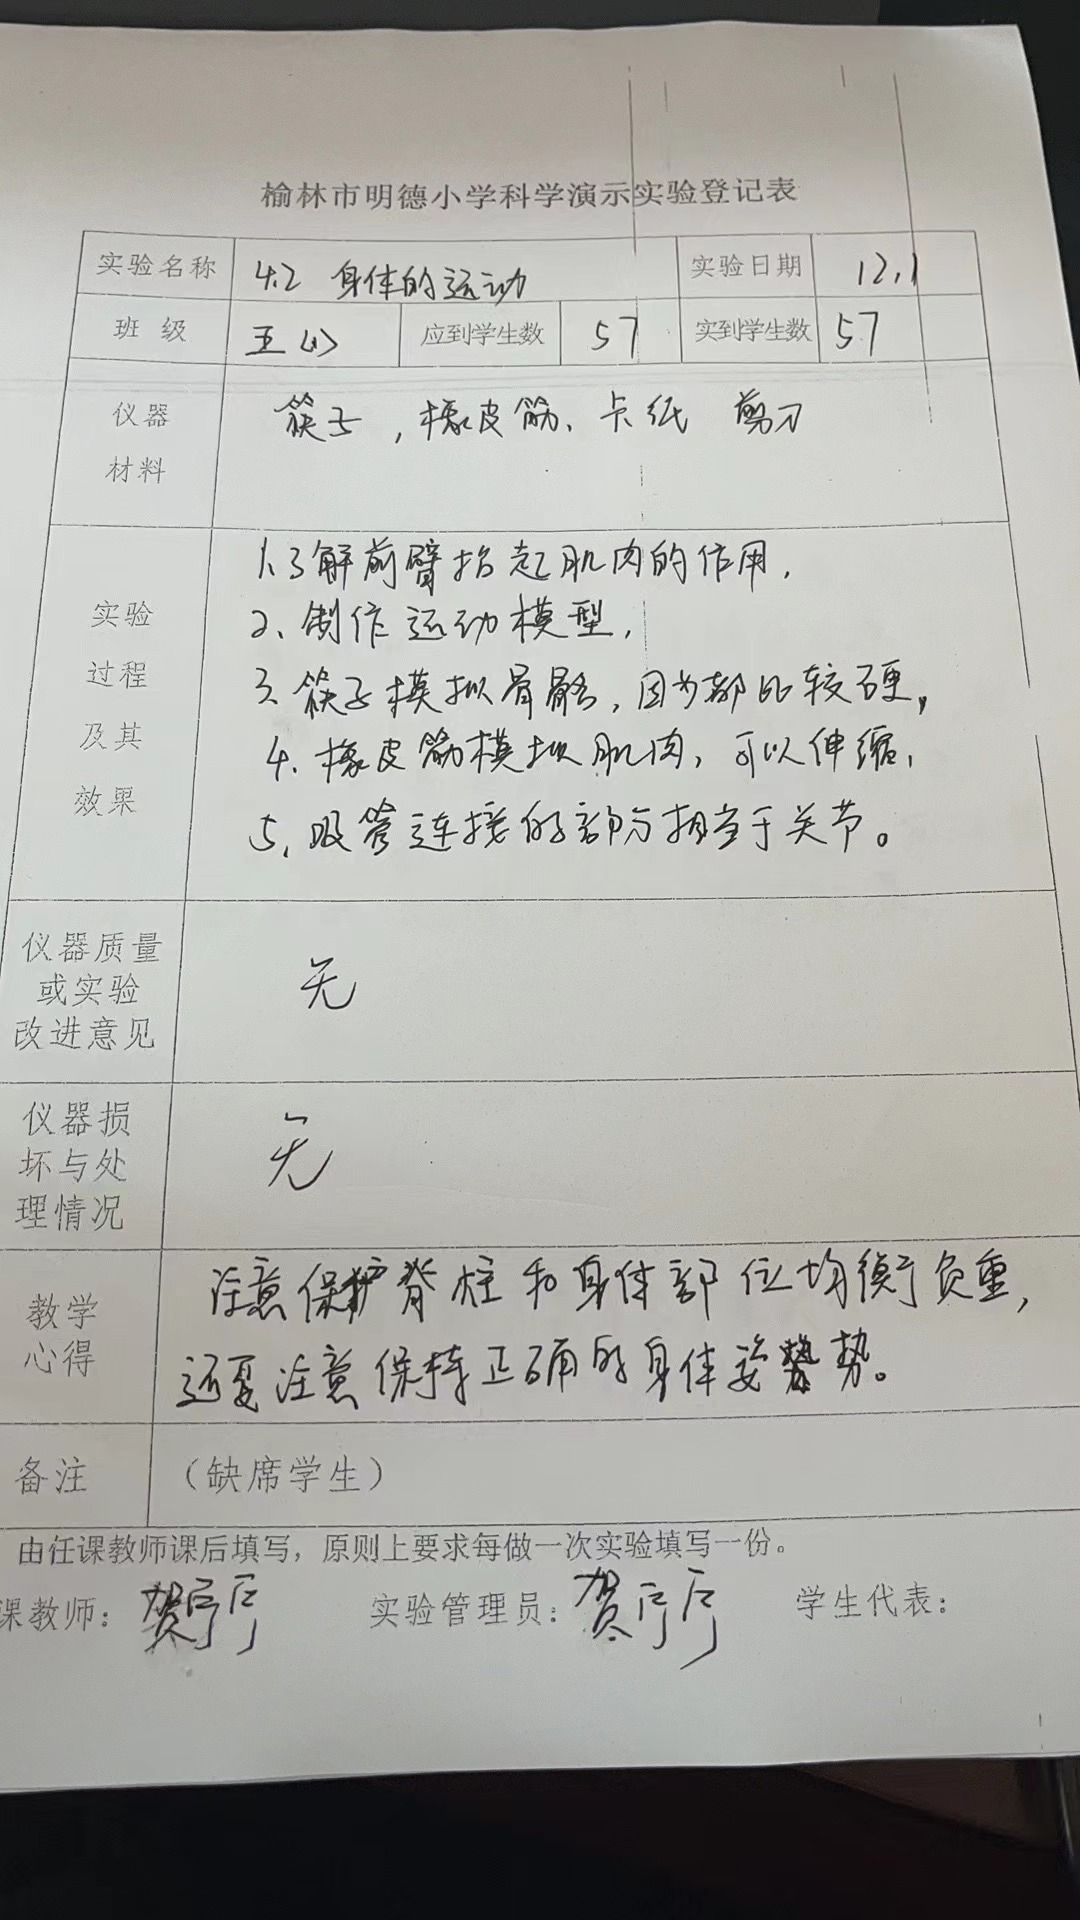 榆林市明德小学科学演示实验登记表
实验名称 4.2 身体的运动 实验日期 12.1
班 级 五(1) 应到学生数 57 实到学生数 57
仪器
材料
筷子,橡皮筋、卡纸 剪刀
实验
过程
及其
效果
1.了解前臂抬起肌肉的作用.
2、制作运动模型.
3、筷子模拟骨骼,因为都比较硬,
4、橡皮筋模拟肌肉,可以伸缩.
5、吸管连接的部分相当于关节。
仪器质量
或实验
改进意见
无
仪器损
坏与处
理情况
无
教学
心得
注意保护脊柱和身体部位均衡负重,
还要注意保持正确的身体姿势。
备注 (缺席学生)
由任课教师课后填写,原则上要求每做一次实验填写一份。
课教师: 贺 实验管理员: 贺 学生代表: